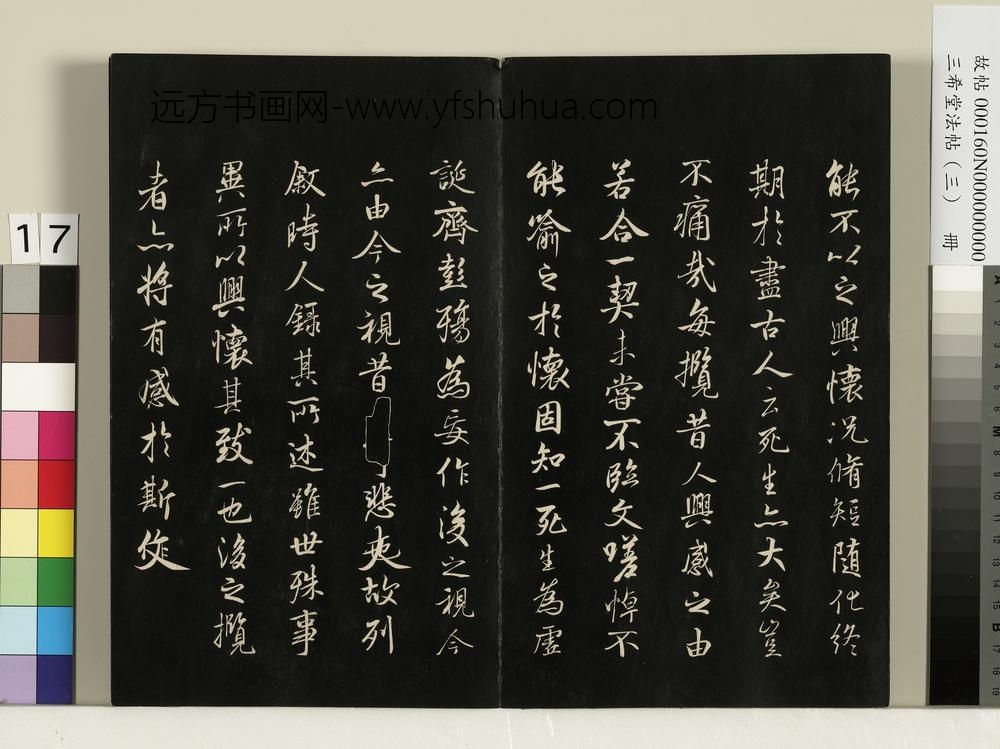 远方书画网-www.yfshuhua.com
能不以之興懷況脩短隨化終
期於盡古人云死生亦大矣豈
不痛哉每攬昔人興感之由
若合一契未嘗不臨文嗟悼不
能喻之於懷固知一死生為虛
誕齊彭殤為妄作後之視今
亦由今之視昔悲夫故列
敘時人錄其所述雖世殊事
異所以興懷其致一也後之攬
者亦將有感於斯文
故帖 000160N000000000
三希堂法帖（三） 冊
17